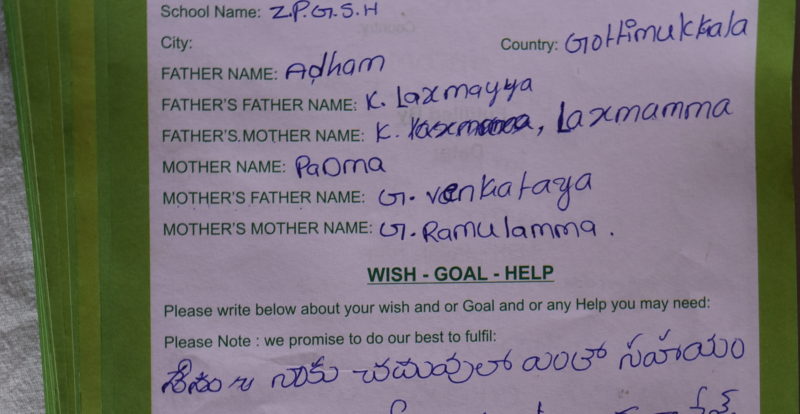 School Name: Z.P.G.S.H
City: Country: Gottimukkala
FATHER NAME: Adham
FATHER'S FATHER NAME: K. Laxmayya
FATHER'S.MOTHER NAME: K. Laxmamma
MOTHER NAME: Padma
MOTHER'S FATHER NAME: G. venkataya
MOTHER'S MOTHER NAME: G. Ramulamma.
WISH - GOAL - HELP
Please write below about your wish and or Goal and or any Help you may need:
Please Note : we promise to do our best to fulfil:
నాకు చదువులో ఎంతో సహాయం